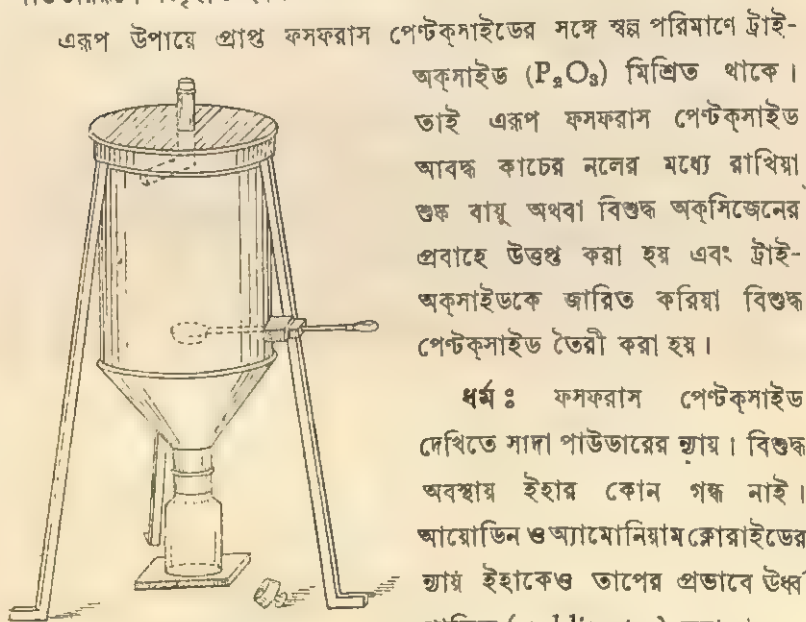 এরূপ উপায়ে প্রাপ্ত ফসফরাস পেণ্টক্‌সাইডের সঙ্গে স্বল্প পরিমাণে ট্রাই-
অক্‌সাইড (P₂O₃) মিশ্রিত থাকে।
তাই এরূপ ফসফরাস পেণ্টক্‌সাইড
আবদ্ধ কাচের নলের মধ্যে রাখিয়া
শুষ্ক বায়ু অথবা বিশুদ্ধ অক্‌সিজেনের
প্রবাহে উত্তপ্ত করা হয় এবং ট্রাই-
অক্‌সাইডকে জারিত করিয়া বিশুদ্ধ
পেণ্টক্‌সাইড তৈরী করা হয়।
ধর্ম ঃ ফসফরাস পেণ্টক্‌সাইড
দেখিতে সাদা পাউডারের ন্যায়। বিশুদ্ধ
অবস্থায় ইহার কোন গন্ধ নাই।
আয়োডিন ও অ্যামোনিয়াম ক্লোরাইডের
ন্যায় ইহাকেও তাপের প্রভাবে ঊর্ধ্ব